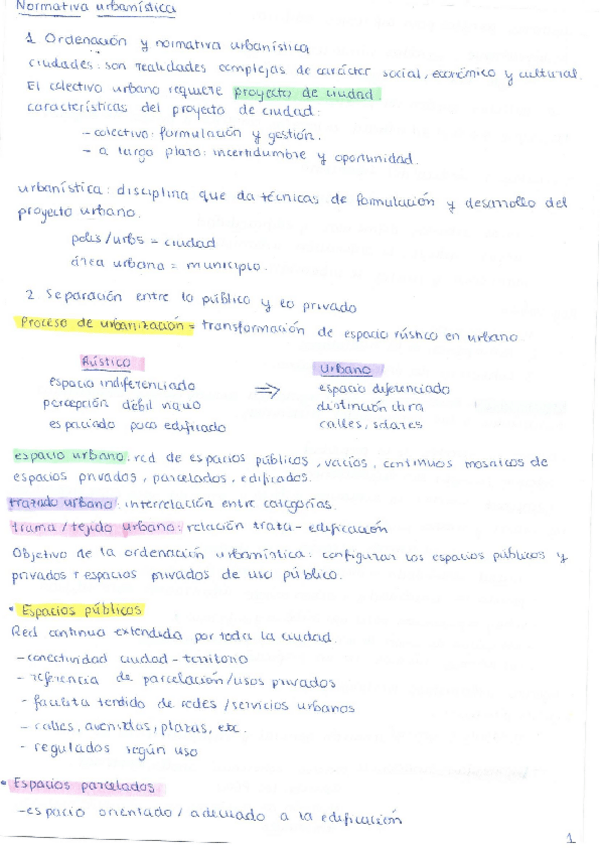 Normativa urbanística
1 Ordenación y normativa urbanística
ciudades: son realidades complejas de carácter social, económico y cultural.
El colectivo urbano requiere proyecto de ciudad
características del proyecto de ciudad:
- colectivo: formulación y gestión.
- a largo plazo: incertidumbre y oportunidad.
urbanística: disciplina que da técnicas de formulación y desarrollo del
proyecto urbano.
polis/urbs = ciudad
área urbana = municipio.
2 Separación entre lo público y lo privado
Proceso de urbanización = transformación de espacio rústico en urbano.
Rústico
espacio indiferenciado
percepción débil vacío
espaciado poco edificado
⇒
Urbano
espacio diferenciado
distinción clara
calles, solares
espacio urbano: red de espacios públicos, vacíos, continuos mosaicos de
espacios privados, parcelados, edificados.
trazado urbano: interrelación entre categorías.
trama/tejido urbano: relación trata - edificación
Objetivo de la ordenación urbanística: configurar los espacios públicos y
privados + espacios privados de uso público.
• Espacios públicos
Red continua extendida por toda la ciudad.
- conectividad ciudad - territorio
- referencia de parcelación/usos privados
- facilita tendido de redes/servicios urbanos
- calles, avenidas, plazas, etc.
- regulados según uso
• Espacios parcelados
- espacio orientado/adecuado a la edificación
1